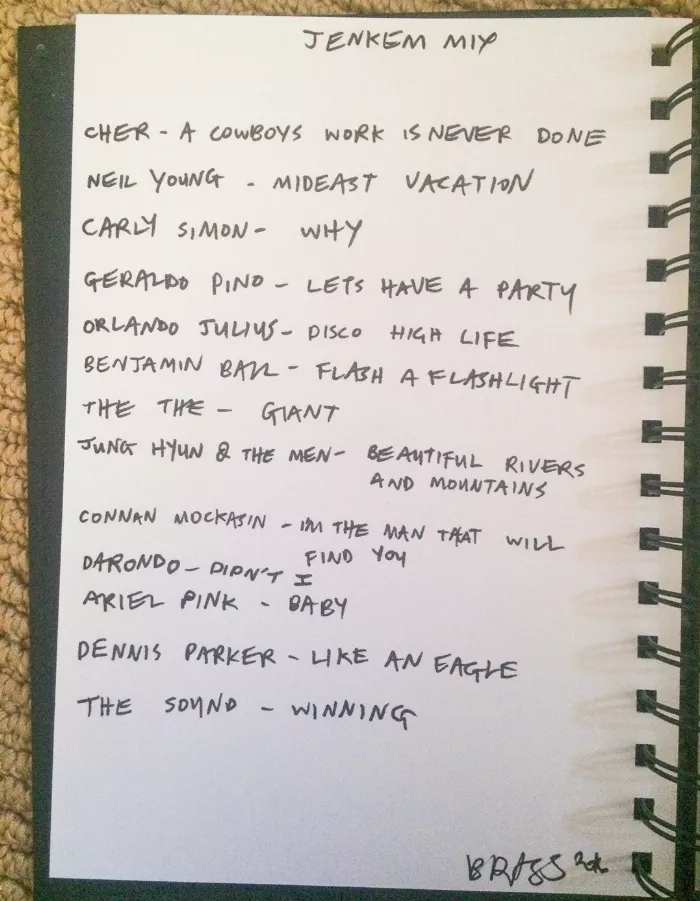 JENKEM MIX
CHER - A COWBOYS WORK IS NEVER DONE
NEIL YOUNG - MIDEAST VACATION
CARLY SIMON - WHY
GERALDO PINO - LETS HAVE A PARTY
ORLANDO JULIUS - DISCO HIGH LIFE
BENJAMIN BALL - FLASH A FLASHLIGHT
THE THE - GIANT
JUNG HYUN & THE MEN - BEAUTIFUL RIVERS
AND MOUNTAINS
CONNAN MOCKASIN - IM THE MAN THAT WILL
FIND YOU
DARONDO - DIDN'T I
ARIEL PINK - BABY
DENNIS PARKER - LIKE AN EAGLE
THE SOUND - WINNING